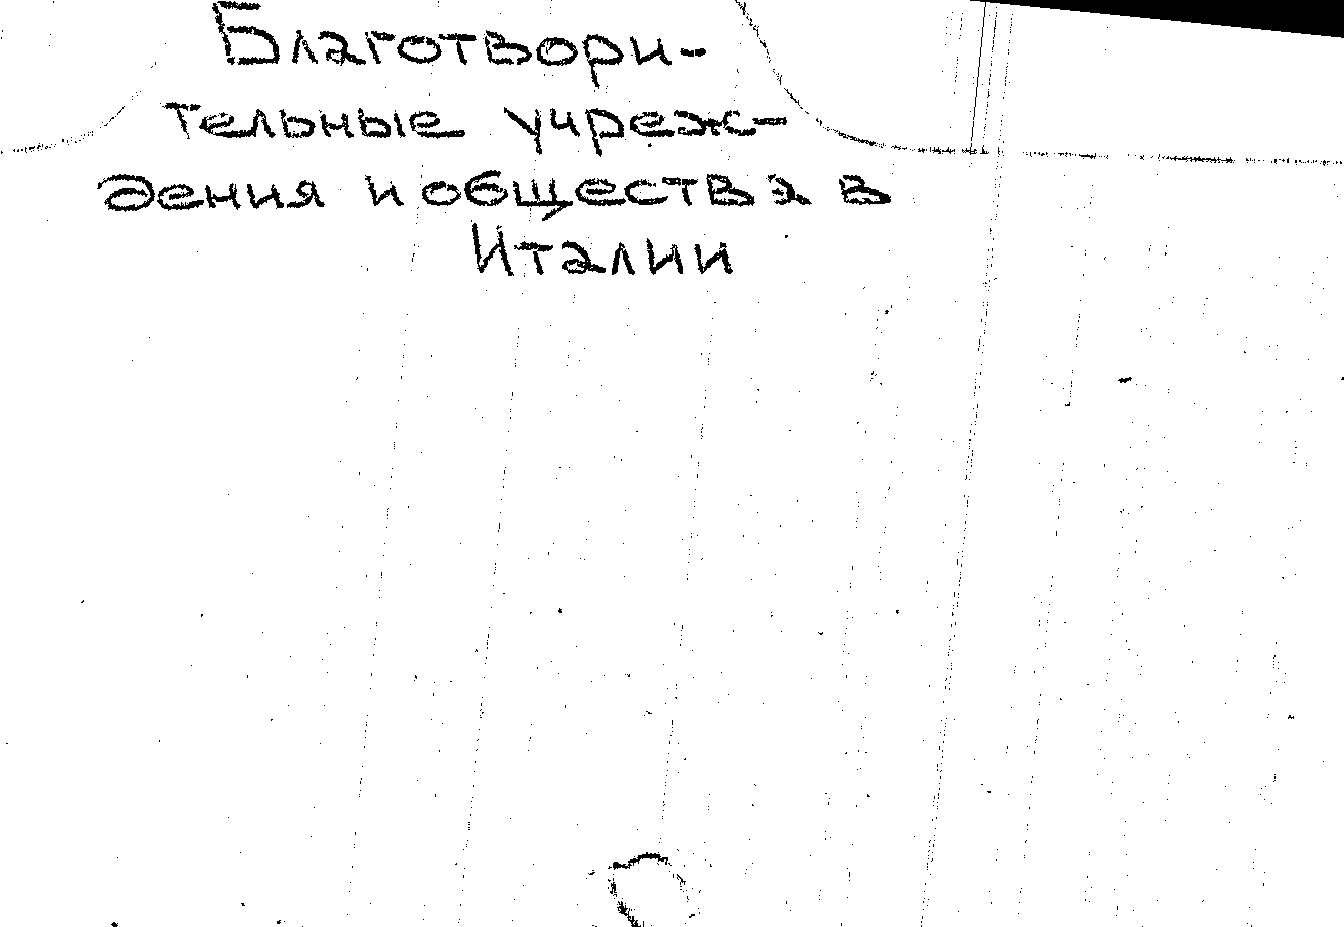 Благотвори-
тельные учреж-
дения и общества в
Италии